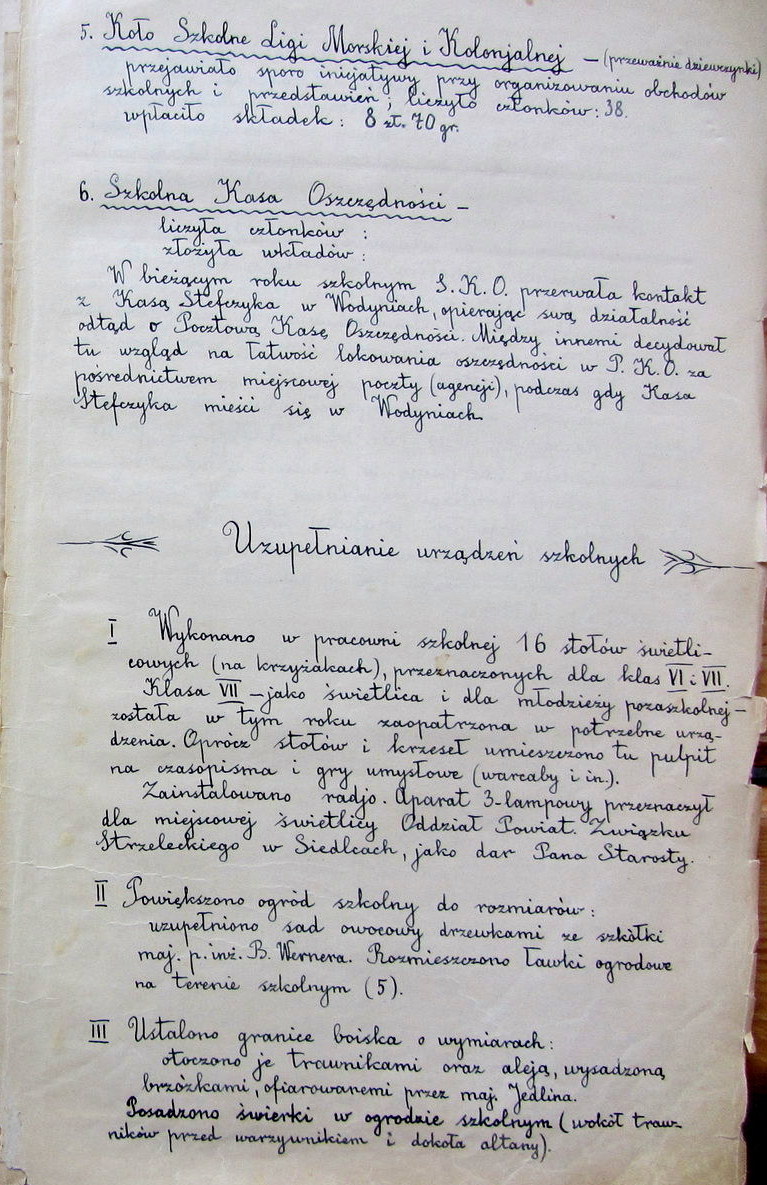 5. Koło Szkolne Ligi Morskiej i Kolonjalnej – (przeważnie dziewczynki)
przejawiało sporo inicjatywy przy organizowaniu obchodów
szkolnych i przedstawień; liczyło członków: 38.
wpłaciło składek: 8 zł. 70 gr.
6. Szkolna Kasa Oszczędności –
liczyła członków :
złożyła wkładów :
W bieżącym roku szkolnym S. K. O. przerwała kontakt
z Kasą Stefczyka w Wodyniach, opierając swą działalność
odtąd o Pocztową Kasę Oszczędności. Między innemi decydował
tu wzgląd na łatwość lokowania oszczędności w P. K. O. za
pośrednictwem miejscowej poczty (agencji), podczas gdy Kasa
Stefczyka mieści się w Wodyniach.
Uzupełnianie urządzeń szkolnych
I Wykonano w pracowni szkolnej 16 stołów świetli-
cowych (na krzyżakach), przeznaczonych dla klas VI i VII.
Klasa VII – jako świetlica i dla młodzieży pozaszkolnej –
została w tym roku zaopatrzona w potrzebne urzą-
dzenia. Oprócz stołów i krzeseł umieszczono tu pulpit
na czasopisma i gry umysłowe (warcaby i in.).
Zainstalowano radjo. Aparat 3-lampowy przeznaczył
dla miejscowej świetlicy Oddział Powiat. Związku
Strzeleckiego w Siedlcach, jako dar Pana Starosty.
II Powiększono ogród szkolny do rozmiarów :
uzupełniono sad owocowy drzewkami ze szkółki
maj. p. inż. B. Wernera. Rozmieszczono ławki ogrodowe
na terenie szkolnym (5).
III Ustalono granice boiska o wymiarach :
otoczono je trawnikami oraz aleją, wysadzoną
brzózkami, ofiarowanemi przez maj. Jedlina.
Posadzono świerki w ogrodzie szkolnym (wokół traw-
ników przed warzywnikiem i dokoła altany).